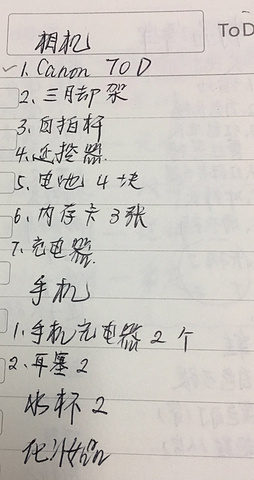 相机
ToD
✓1. Canon 70D
2. 三脚架
3. 自拍杆
4. 遥控器
5. 电池 4块
6. 内存卡 3张
7. 充电器
手机
1. 手机充电器 2个
2. 耳塞 2
水杯 2
化妆品